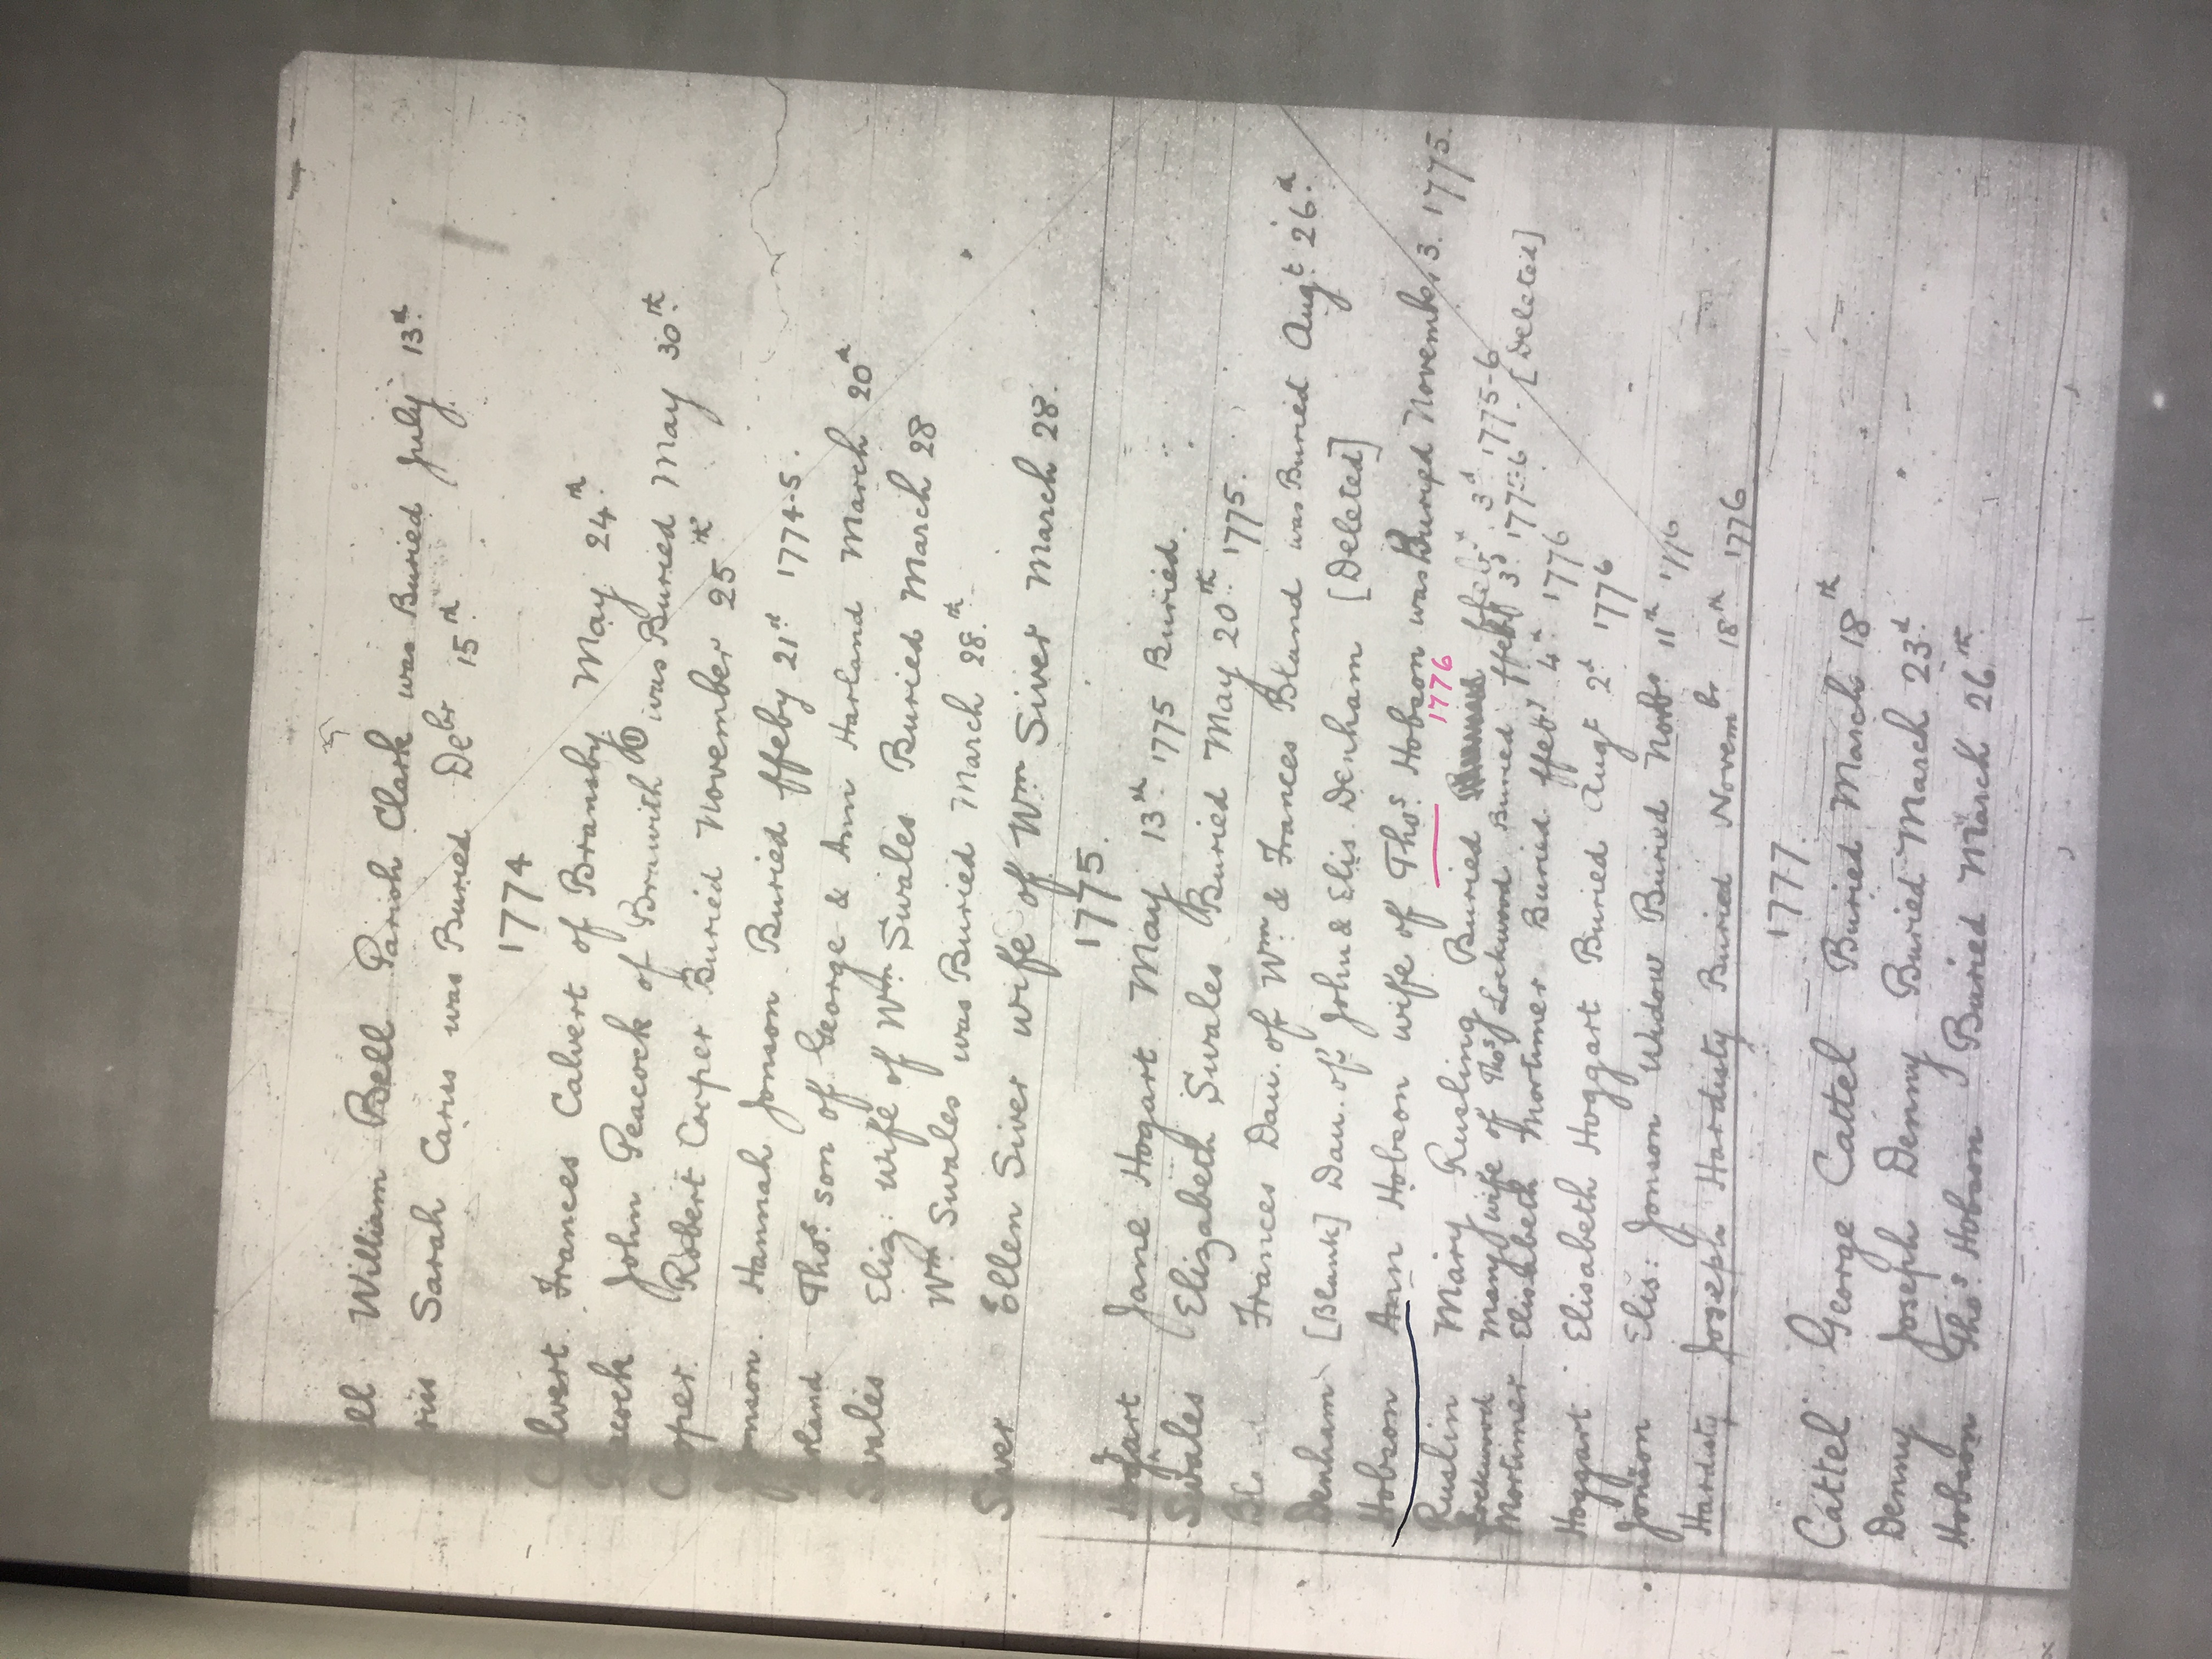 ell William Bell Parish Clark was Buried July 13th.
rius Sarah Carius was Buried Debr 15th.
1774
Calvert. Frances Calvert of Bransby May 24th.
Peacock John Peacock of Brawith was Buried May 30th.
Cooper. Robert Cooper Buried November 25th
Jonson. Hannah Jonson Buried ffeby 21st 1774-5.
rland Thos. son of George & Ann Harland March 20th
Swales Eliz: wife of Wm. Swales Buried March 28
Wm. Swales was Buried March 28th.
Siver Ellen Siver wife of Wm Siver March 28.
1775.
Hogart Jane Hogart May 13th 1775 Buried.
Swales Elizabeth Swales Buried May 20th. 1775.
Bla Frances Dau. of Wm & Frances Bland was Buried Augt 26th.
Denham [Blank] Dau. of John & Elis. Denham [Deleted]
Hobson Ann Hobson wife of Thos Hobson was Buried November 3. 1775.
1776
Ruslin Mary Rusling Buried 3d 1775-6
Lockwood Mary wife of Thos Lockwood Buried ffeby 3d 177=6. [Deleted]
Mortimer Elisabeth Mortimer Buried ffeby 4th 1776
Hoggart. Elisabeth Hoggart Buried Augt 2d 1776
Jonson Elis: Jonson Widow Buried Novbr 11th 1776
Hardisty Joseph Hardisty Buried Novembr 18th 1776
1777.
Cattel George Cattel Buried March 18th
Denny Joseph Denny Buried March 23d.
Hobson Thos Hobson J Buried March 26th.